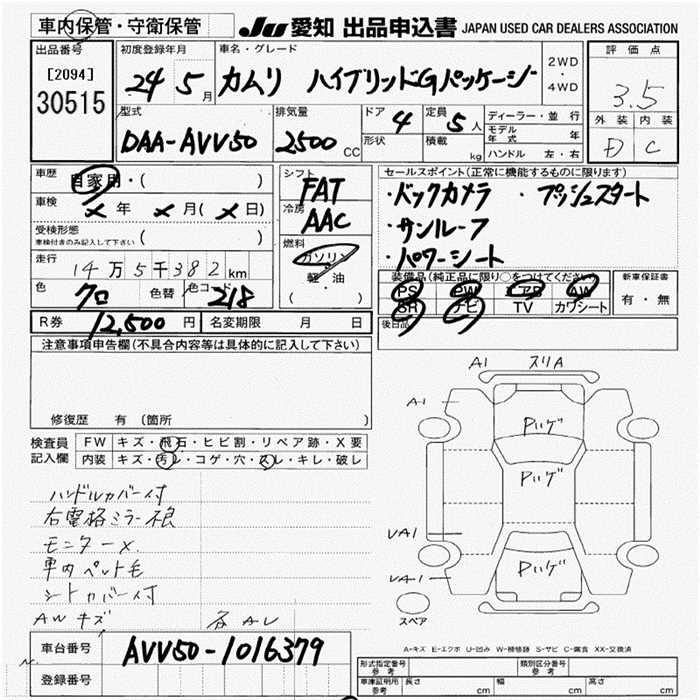 車内保管・守衛保管 JU 愛知 出品申込書 JAPAN USED CAR DEALERS ASSOCIATION
出品番号 初度登録年月 車名・グレード 2WD・4WD 評価点
[2094] 30515 24 5月 カムリ ハイブリッドGパッケージ 3.5
型式 排気量 ドア 4 定員 5人 ディーラー・並行 外装 内装
DAA-AVV50 2500CC 形状 積載 kg モデル年式 年 D C
ハンドル 左・右
車歴 自家用・( ) シフト FAT セールスポイント(正常に機能するものに限ります)
車検 × 年 × 月( × 日) 冷房 AAC ・バックカメラ ・プッシュスタート
受検形態 車検付きのみ記入して下さい ( ) 燃料 ・サンルーフ
走行 14万5千382km ガソリン ・パワーシート
軽・油 ( ) 装備品(純正品に限り○をつけてください) 新車保証書
色 クロ 色替 色コード 218 PS PW エアB AW 有・無
SR ナビ TV カワシート
R券 12,500円 名変期限 月 日 後日品
注意事項申告欄(不具合内容等は具体的に記入して下さい)
A1 スリA
A1
修復歴 有 (箇所 )
Pハゲ
検査員記入欄 FW キズ・飛石・ヒビ割・リペア跡・X要
内装 キズ・汚レ・コゲ・穴・スレ・キレ・破レ
Pハゲ
ハンドルカバー付
右電格ミラー不良
モニター×. UA1
車内ペット毛 Pハゲ
シートカバー付 UA1
AWキズ 各AL スペア
A-キズ E-エクボ U-凹み W-補修跡 S-サビ C-腐食 XX-交換済
車台番号 AVV50-1016379
登録番号 形式指定番号 参考 類別区分番号 参考
車庫証明用 参考 長さ cm 幅 cm 高さ cm